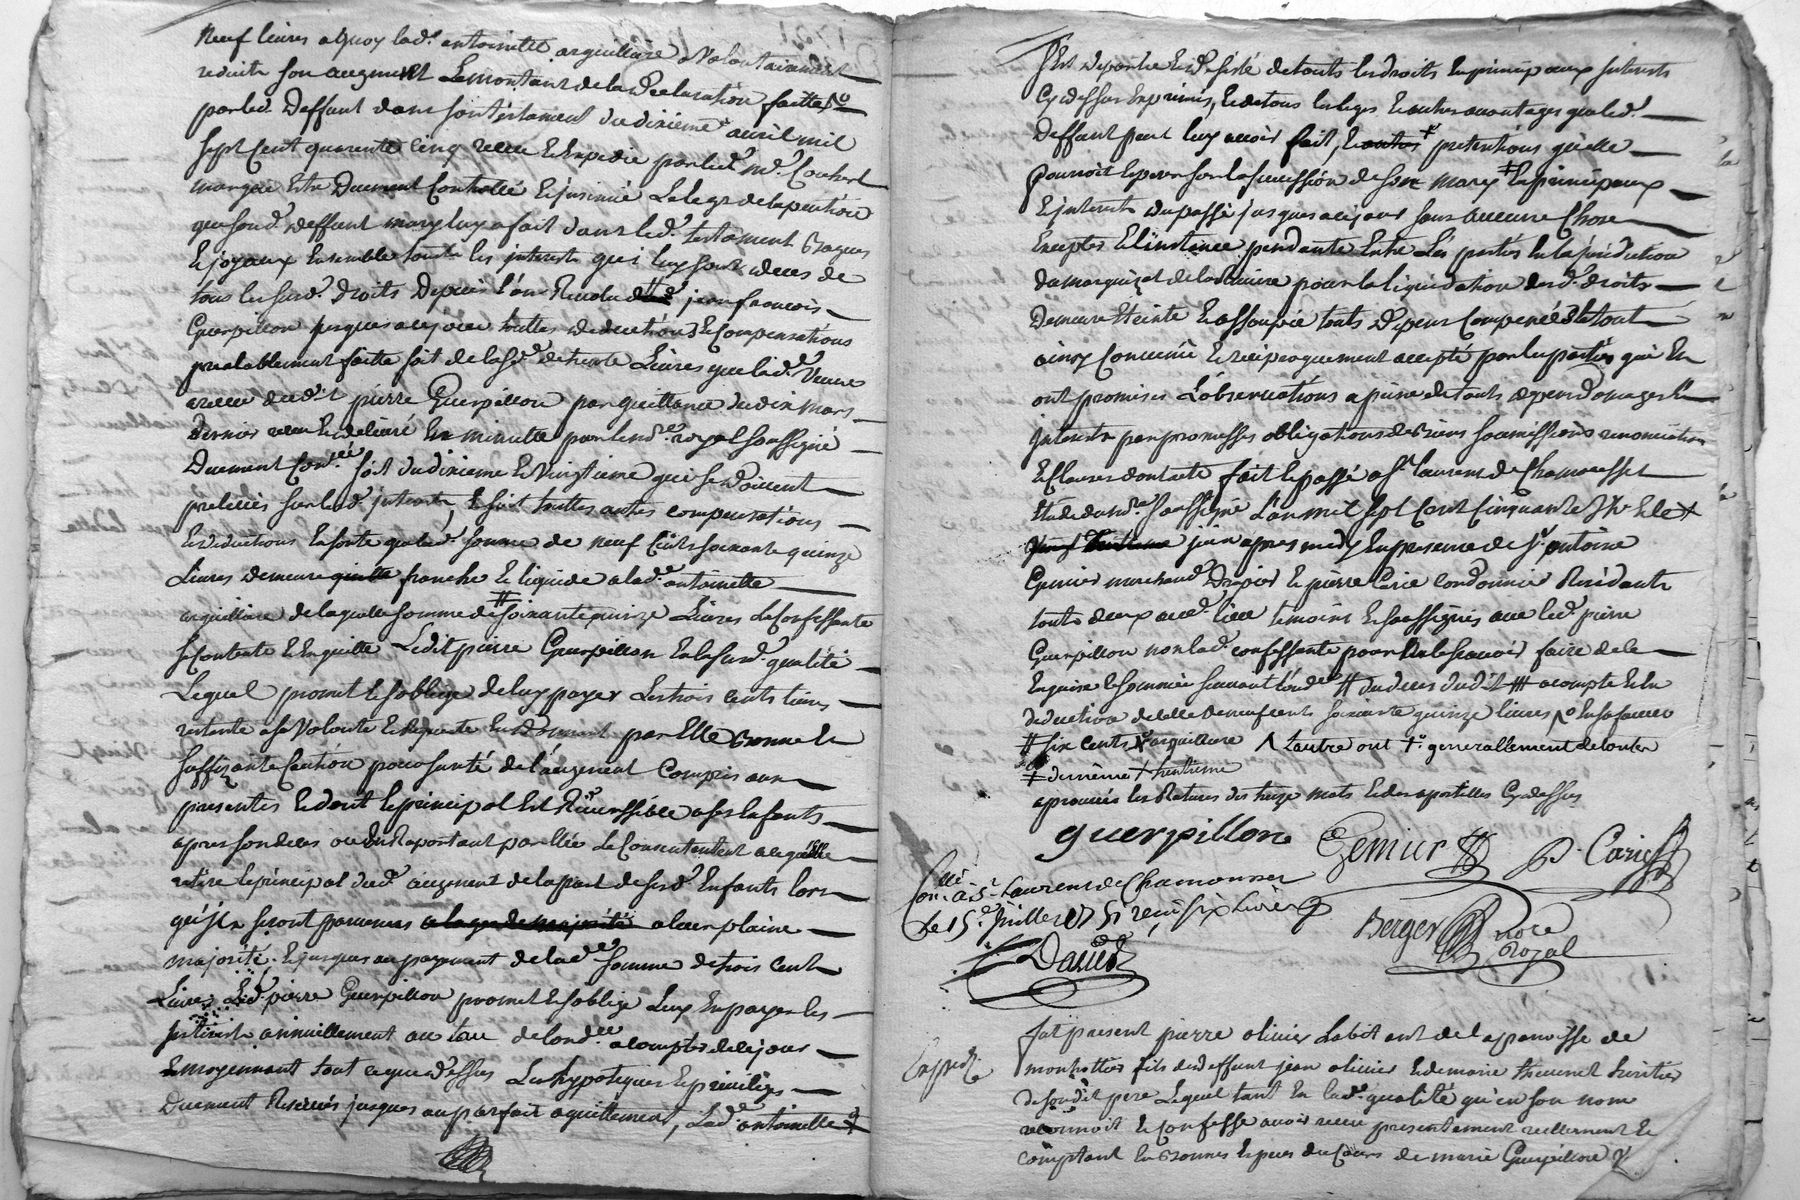 neuf livres a quoy lad.e antoinette arquilliere a volontairement
reduits son augment Le montant de la declaration faitte
par led. deffunt dans son testament du dixieme avril mil
sept cent quarente cinq receu et expedie par led. m.e Couhert
marque etre duement Controllé et insinué Le legs de la pention
que sond. deffunt mary luy a fait dans led. testament Bagues
et joyaux Ensemble touts les interests qui luy sont deues de
tous les surd. droits depuis l'an Revolu jean francois
Guerpillon jusques a ce jour touttes deductions et Compensations
prealablement faitte soit de la so.e de trente Livres que lad.e veuve
a receu dudit pierre Guerpillon par quittance du dix mars
dernier receu et delivré En minutte par le no.re royal soussigné
Duement Con.llée soit du dixieme et vingtieme qui se doivent
prelever sur lesd. interests, et soit touttes autres compensations
et deductions En sorte que lad. somme de neuf cents soixante quinze
Livres demeure quitte franche et liquide a lad.e antoinette
arquilliere de laquelle somme de # soixante quinze Livres La Confessante
se Contente et En quitte Ledit pierre Guerpillon En la surd. qualité
Lequel promet et s'oblige de luy payer Les trois cents livres
restante a sa volonté et Requete En donnant par Elle Bonne et
suffizante Caution pour sureté de l'augment Compris aux
presentes et dont le principal Est Reverssible a ses Enfants
apres son deces ou En Raportant par Elle Le Consentement a ce qu'elle
retire le principal dud. augment de la part de sesd. Enfants lors
qu'ils seront parvenus a l'age de majorité a leur plaine
majorité. Et jusques au payement de lad.e somme de trois cent
Livres Led. pierre Guerpillon promet et s'oblige Luy En payer les
interests annuellement au taux de lond.ce a compter de ce jour
Et moyennant tout ce que dessus Les hypoteques et privileges
Duement Reservés jusques au parfait aquittement, Lad.e antoinette
s'est departie et desisté de touts les droits En principaux interests
Cy dessus Exprimés, et de tous les legs et autres avantages que led.
deffunt peut luy avoir fait, et autres pretentions qu'elle
pourroit Esperer sur la succession de son mary En principaux
et interests du passé jusques a ce jour sans aucune Chose
Excepter et l'instence pendante Entre Les parties En la juridiction
du marquizat de la pour la liquidation desd. droits
demeure Eteinte et assoupie touts depens Compensés et le tout
ainsy Convenu et reciproquement accepté par les parties qui En
ont promises L'observations a peine de touts depens domages et
interests par promesses obligations de Biens soumissions renonciations
et clauses dont acte fait et passé a S.t laurens de Chamousset
Etude du no.re soussigné L'an mil sept Cent Cinquante et le
juin apres midy En presence de s.r antoine
Genier marchand Drapier et pierre Carie cordonnier Residants
touts deux aud. lieu temoins et soussignés avec led. pierre
Guerpillon non lad. confessante pour ne le scavoir faire de ce
Enquise et sommée suivant l'ond.ce # du deces dudit ## a compte et En
deduction de celle de neuf cents soixante quinze livres En sa faveur
# six cents arquilliere L'autre ont generallement de toutes
dernieme trentieme
aprouvés les Ratures des treize mots et des apostilles Cy dessus
guerpillon Genier P. Carie
Con.llé a S.t Laurens de Chamousset
Le 15.e Juillet 1751 receu six Livres
David
Berger no.re
Royal
Expedié
fut present pierre olivier habitant de la parroisse de
montrottier fils de deffunt jean olivier et de marie thevenet heritier
de sondit pere Lequel tant En lad. qualité qu'en son nom
reconnoit et confesse avoir receu presentement reellement et
comptant En Bonnes Especes du Cours de marie Guerpillon